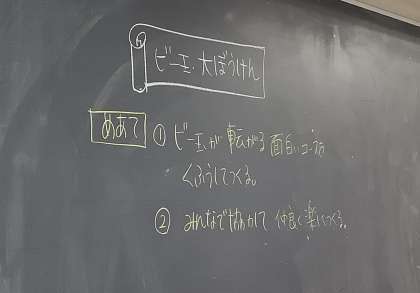 ビー玉・大ぼうけん
めあて ① ビー玉が転がる面白いコースを
くふうしてつくる。
② みんなで協力して仲良く楽しくつくる。